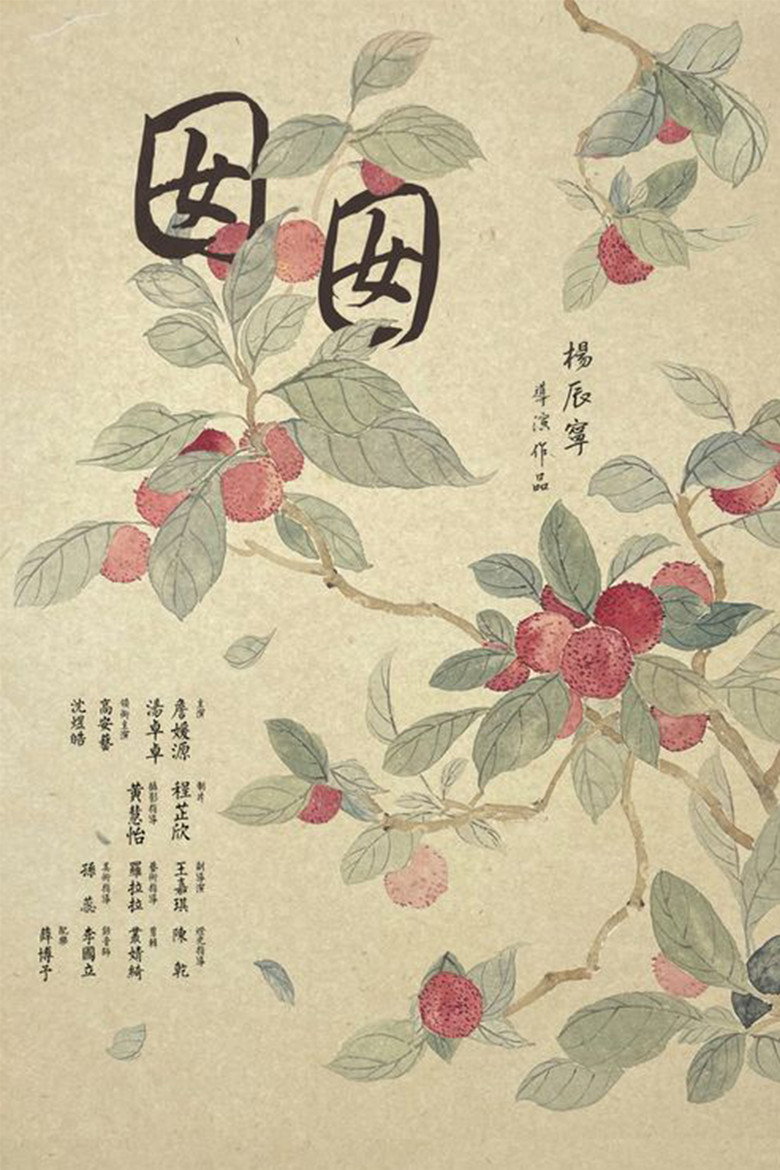 囡囡
楊辰寧
導演作品
主演
詹媛源
湯卓卓
領銜主演
高安藝
沈煜皓
製片
程芷欣
攝影指導
黃慧怡
副導演
王嘉琪
藝術指導
羅拉拉
美術指導
孫蕊
燈光指導
陳乾
剪輯
叢婧綺
錄音師
李國立
配樂
薛博予